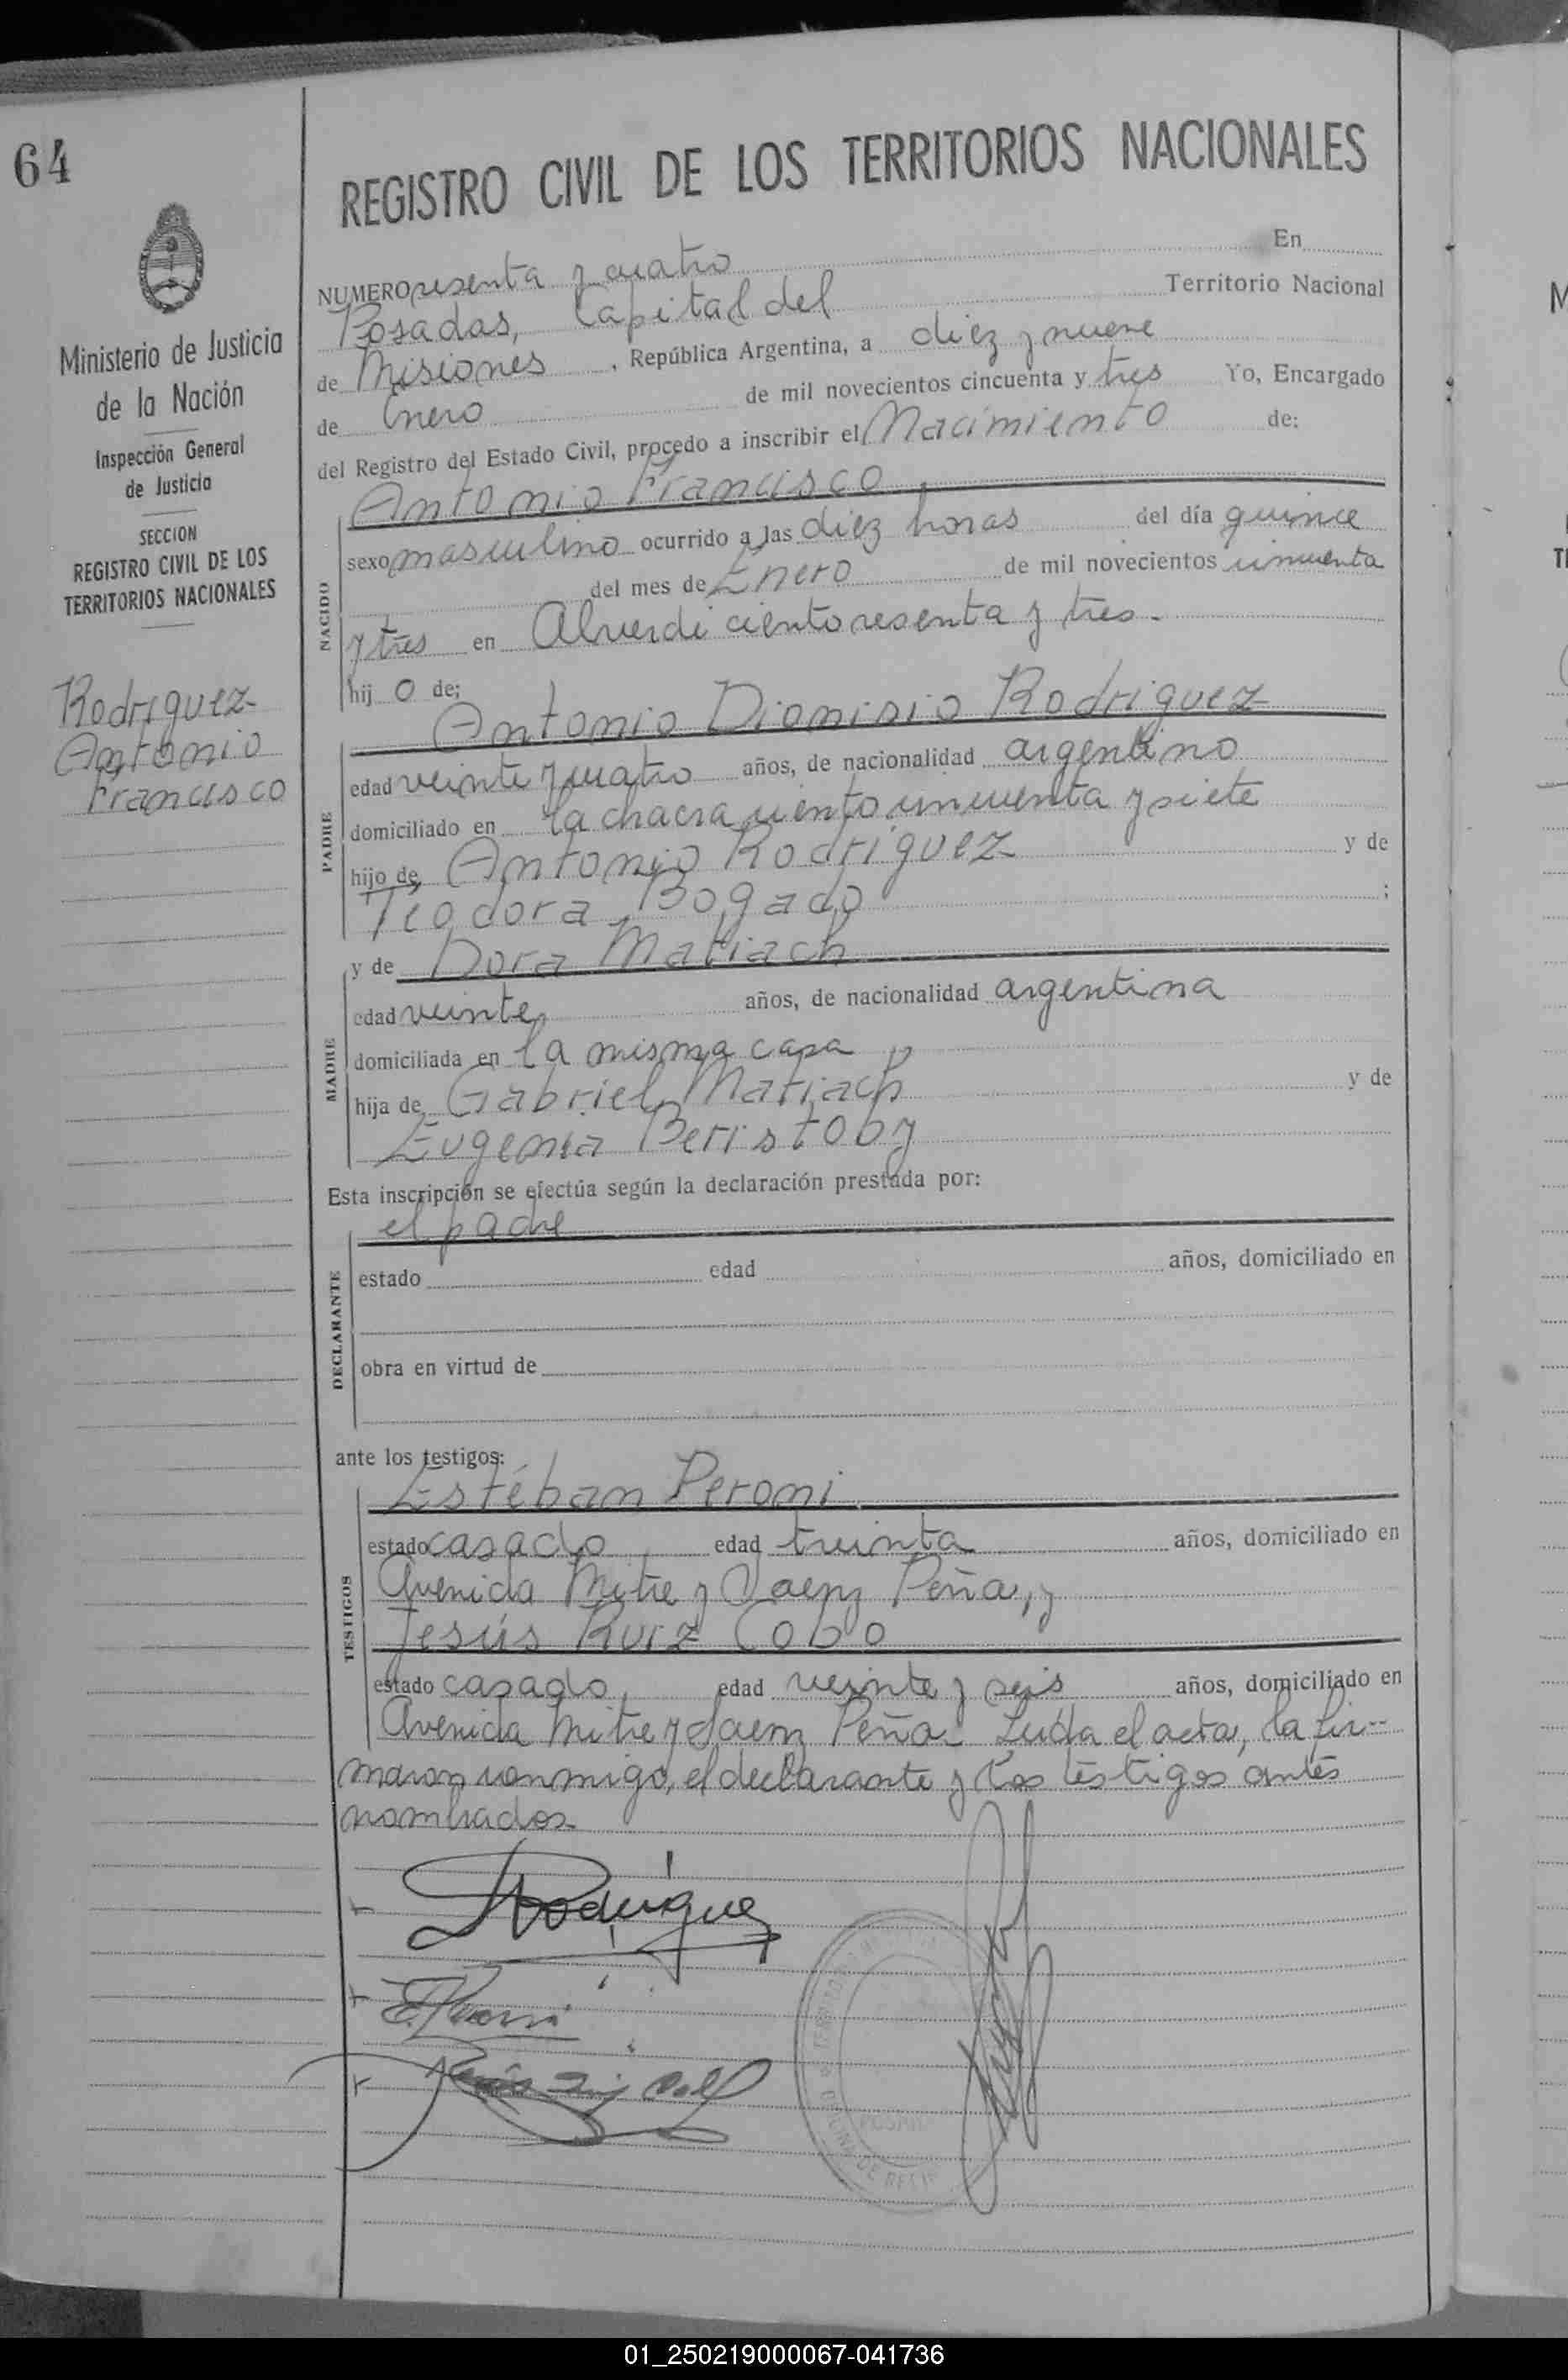 64
Ministerio de Justicia
de la Nación
Inspección General
de Justicia
SECCION
REGISTRO CIVIL DE LOS
TERRITORIOS NACIONALES
Rodriguez
Antonio
Francisco
REGISTRO CIVIL DE LOS TERRITORIOS NACIONALES
NUMERO sesenta y cuatro En
Posadas, Capital del Territorio Nacional
de Misiones, República Argentina, a diez y nueve
de Enero de mil novecientos cincuenta y tres Yo, Encargado
del Registro del Estado Civil, procedo a inscribir el Nacimiento de:
Antonio Francisco
NACIDO
sexo masculino ocurrido a las diez horas del día quince
del mes de Enero de mil novecientos cincuenta
y tres en Alverdi ciento sesenta y tres.
hij o de:
Antonio Dionisio Rodriguez
PADRE
edad veinte y cuatro años, de nacionalidad argentino
domiciliado en la chacra ciento cincuenta y siete
hijo de Antonio Rodríguez y de
Teodora Bogado ;
y de Dora Matiach
MADRE
edad veinte años, de nacionalidad argentina
domiciliada en la misma casa
hija de Gabriel Matiach y de
Eugenia Beristoby
Esta inscripción se efectúa según la declaración prestada por:
el padre
DECLARANTE
estado edad años, domiciliado en
obra en virtud de
ante los testigos:
Estéban Peroni
TESTIGOS
estado casado edad treinta años, domiciliado en
Avenida Mitre y Saenz Peña, y
Jesús Ruiz Cobo
estado casado, edad veinte y seis años, domiciliado en
Avenida Mitre y Saenz Peña. Leída el acta, la fir-
maron conmigo, el declarante y los testigos antes
nombrados.
Rodriguez
E. Peroni
01_250219000067-041736